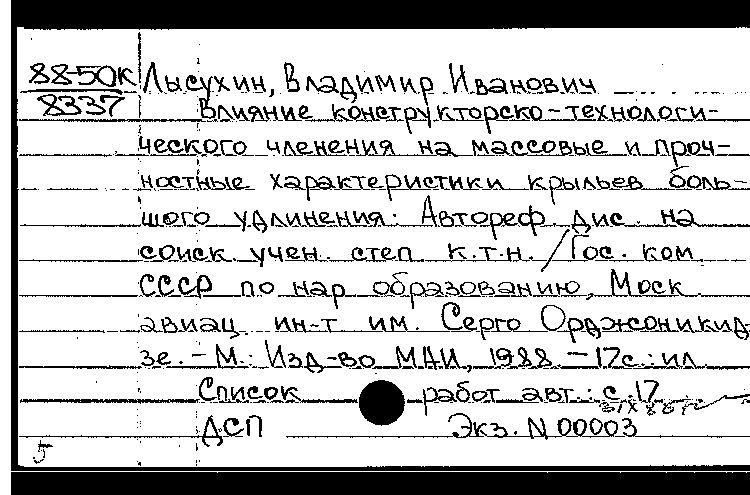 88-50к Лысухин, Владимир Иванович
8337 Влияние конструкторско-технологи-
ческого членения на массовые и проч-
ностные характеристики крыльев боль-
шого удлинения: Автореф. дис. на
соиск. учен. степ. к.т.н. / Гос. ком.
СССР по нар образованию, Моск.
авиац. ин-т им. Серго Орджоникид-
зе. - М.: Изд-во МАИ, 1988. - 17с.: ил.
Список работ авт.: с. 17
ДСП Экз. N 00003
5